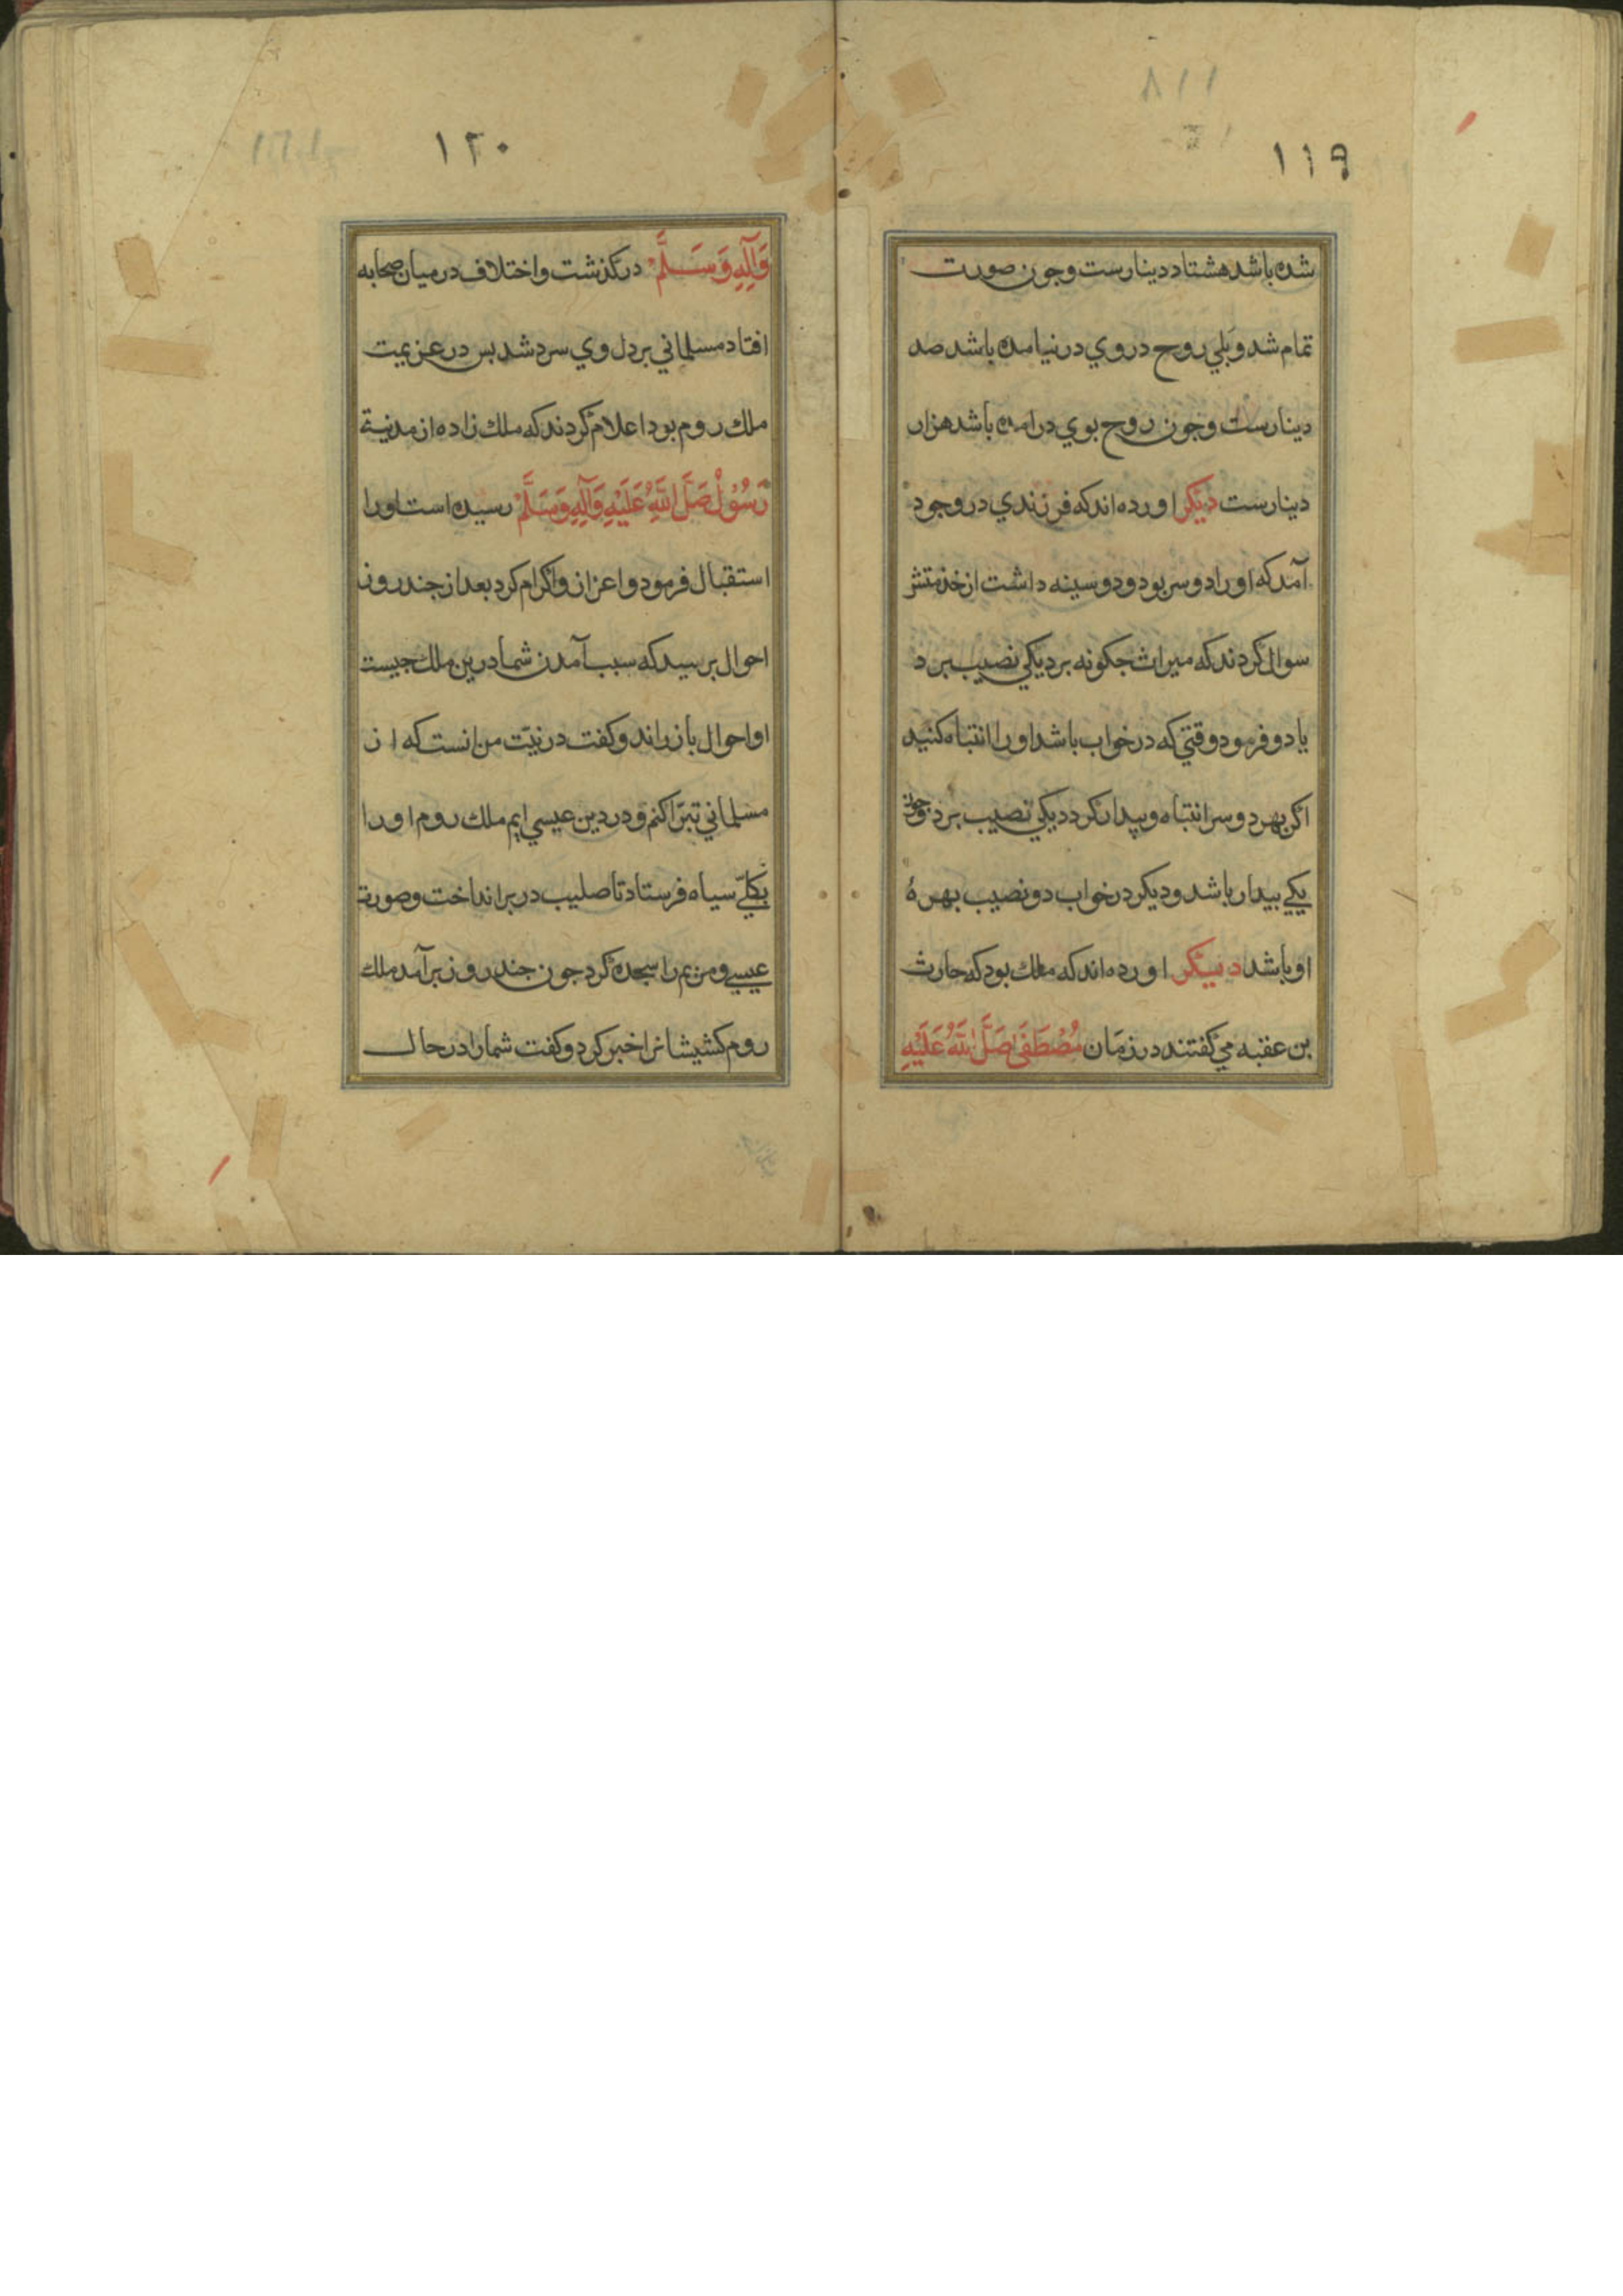 ۱۱۹
شده باشد هشتاد دینارست وجون صورت
تمام شد وبلي روح دروي درنیامده باشد صد
دینارست وجون روح بوي درامده باشد هزار
دینارست دیکر اورده اندکه فرزندي دروجود
آمدکه اورا دوسر بود ودوسینه داشت ازخدمتش
سوال کردندکه میراث جکونه برد یکي نصیب برد
یا دو فرمود وقتي که درخواب باشد اورا انتباه کنید
اکر بهر دوسر انتباه وبیدار کردد یکي نصیب برد وجون
یکي بیدار باشد ودیکر درخواب دو نصیب بهرهٔ
اوباشد دیکر اورده اندکه ملك بود که حارث
بن عقبه مي کفتند درزمان مُصْطَفَی صَلَّی اللّٰهُ عَلَیْهِ
۱۲۰
وَآلِهِ وَسَلَّمْ درکذشت واختلاف درمیان صحابه
افتاد مسلماني بردل وي سرد شد بس درعزیمت
ملك روم بود اعلام کردند که ملك زاده از مدینة
رَسُوْلْ صَلَّی اللّٰهُ عَلَیْهِ وَآلِهِ وَسَلَّمْ رسیده است اورا
استقبال فرمود واعزاز واکرام کرد بعد از جند روز
احوال برسید که سبب آمدن شما درین ملك جیست
او احوال باز راند وکفت درنیّت من انست که از
مسلماني تبرّا کنم ودر دین عیسي ایم ملك روم اورا
سیاه فرستاد تا صلیب دربر انداخت وصورت
عیسي ومریم را سجده کرد جون جند روز برآمد ملك
روم کشیشانرا خبر کرد وکفت شمارا درحال